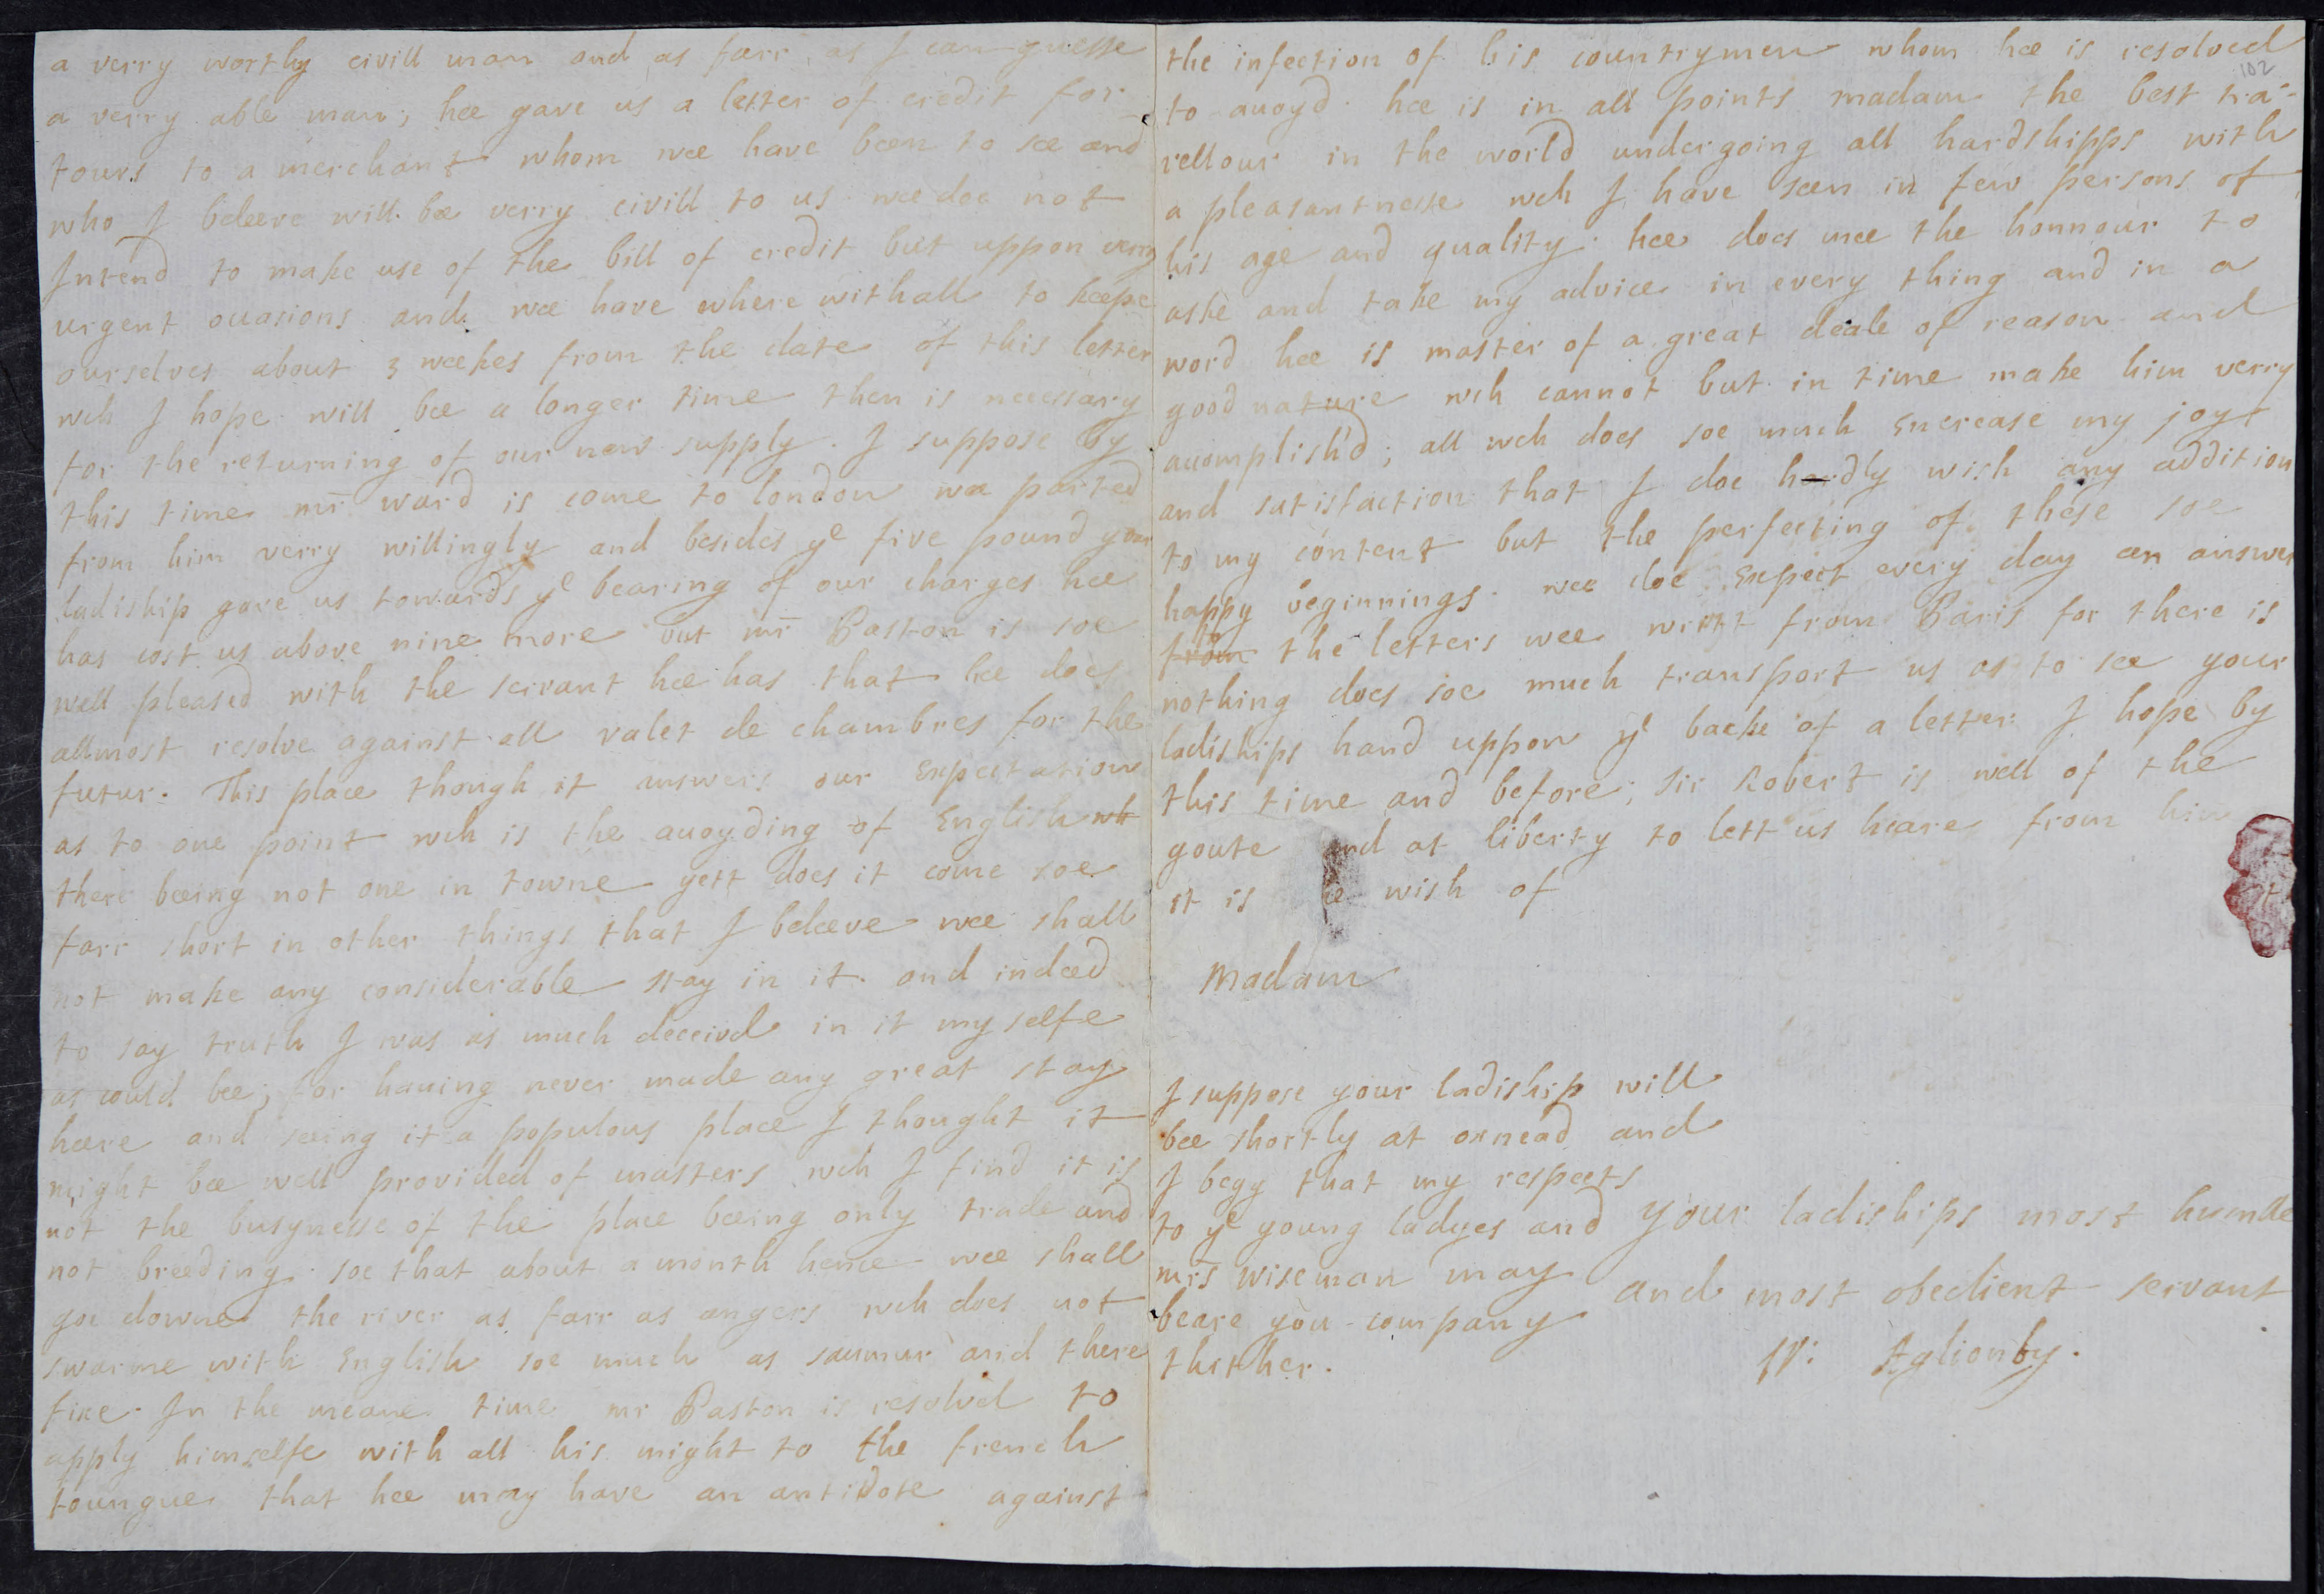 a verry worthy civill man and as farr as I can guesse
a verry able man; hee gave us a letter of credit for
tours to a merchant whom wee have been to see and
who I beleeve will bee verry civill to us wee doe not
Intend to make use of the bill of credit but uppon verry
urgent occasions and wee have where withall to keepe
ourselves about 3 weekes from the date of this letter
wch I hope will bee a longer time then is necessary
for the returning of our new supply. I suppose by
this time mr ward is come to london wee parted
from him verry willingly and besides ye five pound your
ladiship gave us towards ye bearing of our charges hee
has cost us above nine more but mr Paston is soe
well pleased with the servant hee has that hee does
allmost resolve against all valet de chambres for the
futur. This place though it answers our Expectation
as to one point wch is the auoyding of English wh
there beeing not one in towne yett does it come soe
farr short in other things that I beleeve wee shall
not make any considerable stay in it. and indeed
to say truth I was as much deceivd in it my selfe
as could bee; for hauing never made any great stay
heere and seeing it a populous place I thought it
might bee well provided of masters wch I find it is
not the busynesse of the place beeing only trade and
not breeding. soe that about a month hence wee shall
goe downe the river as farr as angers wch does not
swarme with English soe much as saumur and there
fixe. In the meane time mr Paston is resolvd to
apply himselfe with all his might to the french
toungue that hee may have an antidote against
the infection of his countrymen whom hee is resolved
102
to auoyd. hee is in all points madam the best tra-
vellour in the world undergoing all hardshipps with
a pleasantnesse wch I have seen in few persons of
his age and quality. hee does mee the honnour to
aske and take my advice in every thing and in a
word hee is master of a great deale of reason and
good nature wch cannot but in time make him verry
accomplish'd; all wch does soe much Encrease my joy
and satisfaction that I doe hardly wish any addition
to my content but the perfecting of these soe
happy beginnings. wee doe Expect every day an answer
from to the letters wee writt from Paris for there is
nothing does soe much transport us as to see your
ladiships hand uppon ye backe of a letter. I hope by
this time and before, Sir Robert is well of the
goute and at liberty to lett us heare from him
it is wish of
Madam
I suppose your ladiship will
bee shortly at oxnead and
I begg that my respects
to ye young ladyes and
mrs wiseman may
beare you company
thither.
your ladiships most humble
and most obedient servant
W: Aglionby.